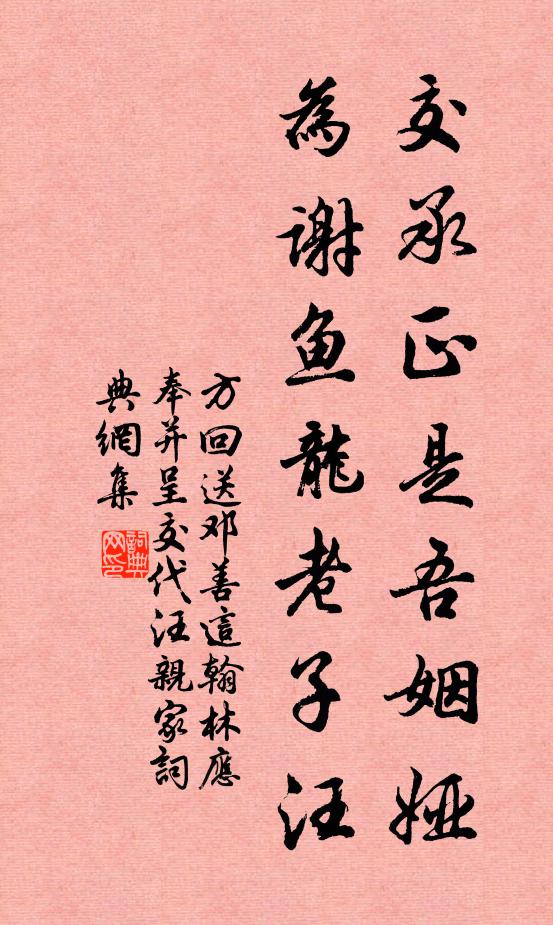 交承正是吾姻娅
為謝鱼龍老子汪
方回送邓善這翰林應
奉并呈交代汪親家詞
典網集
詞典
网印